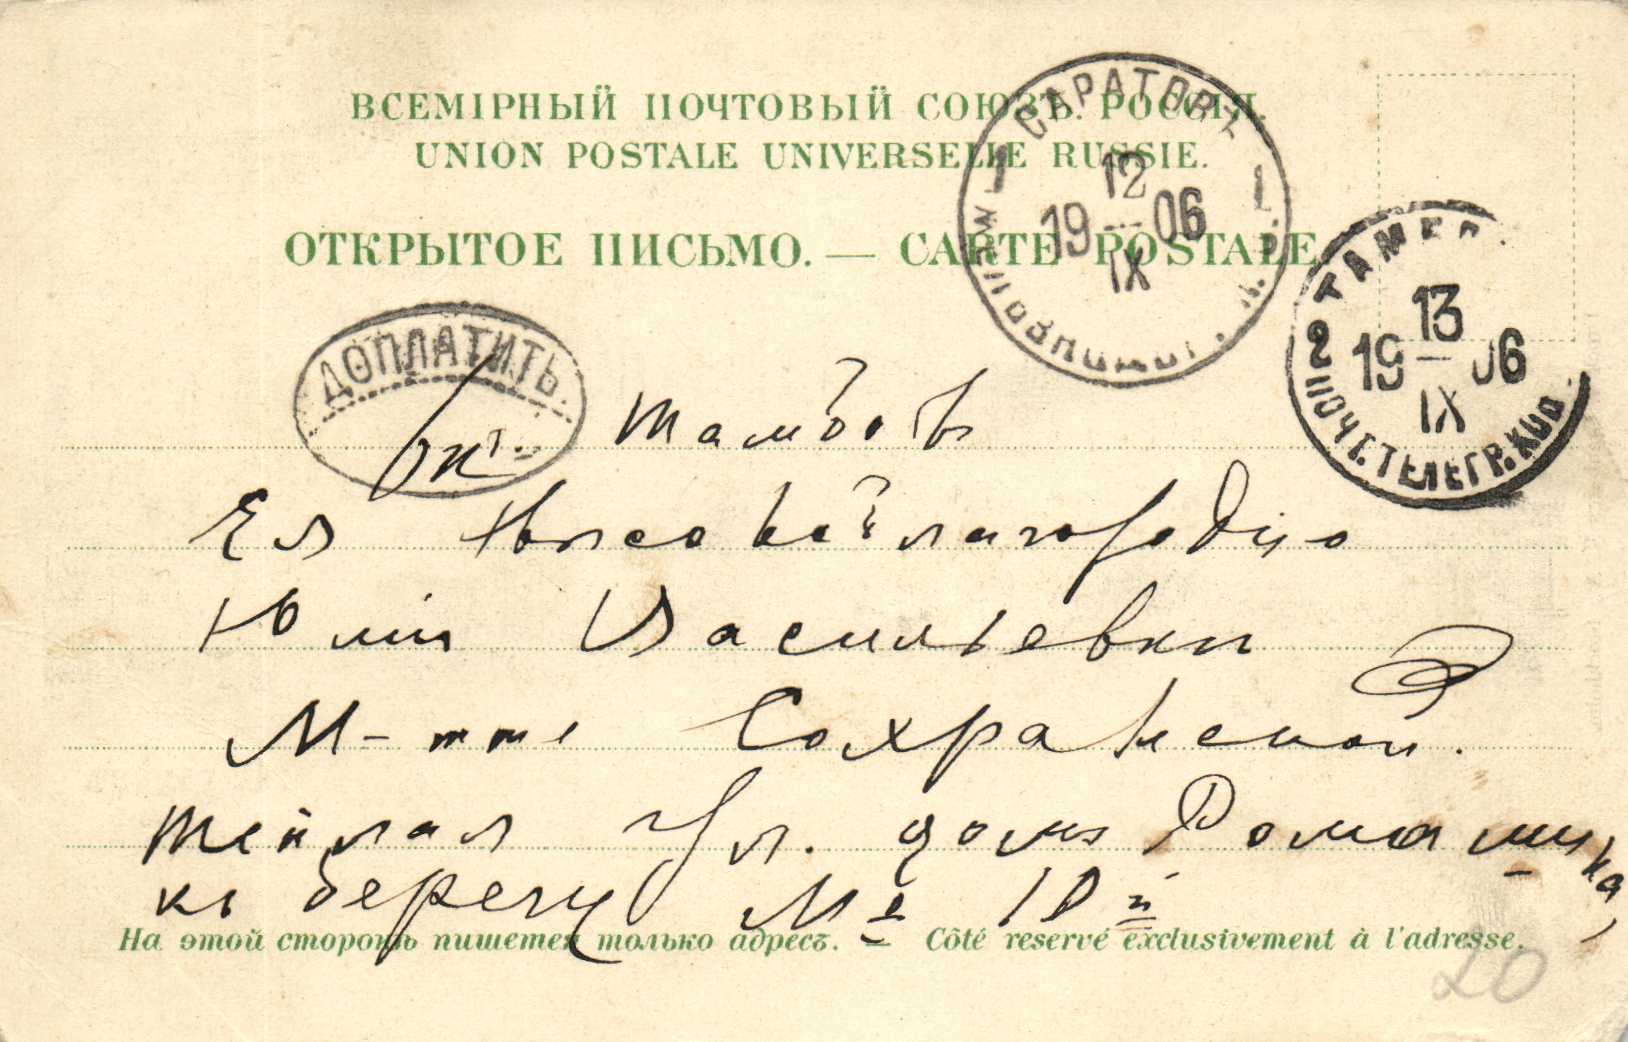 ВСЕМІРНЫЙ ПОЧТОВЫЙ СОЮЗЪ. РОССІЯ.
UNION POSTALE UNIVERSELLE RUSSIE.
ОТКРЫТОЕ ПИСЬМО. — CARTE POSTALE
САРАТОВЪ
12
19—06
IX
2 ТАМБОВ
13
19—06
IX
ПОЧТ. ТЕЛЕГР. КОН
ДОПЛАТИТЬ.
Тамбовъ
Ея Высокоблагородію
Юліи Васильевни
М-mme Сохранской.
Теплая Ул. домъ Ромашина,
къ берегу № 10й
На этой сторонѣ пишется только адресъ. — Côté reservé exclusivement à l'adresse.
20